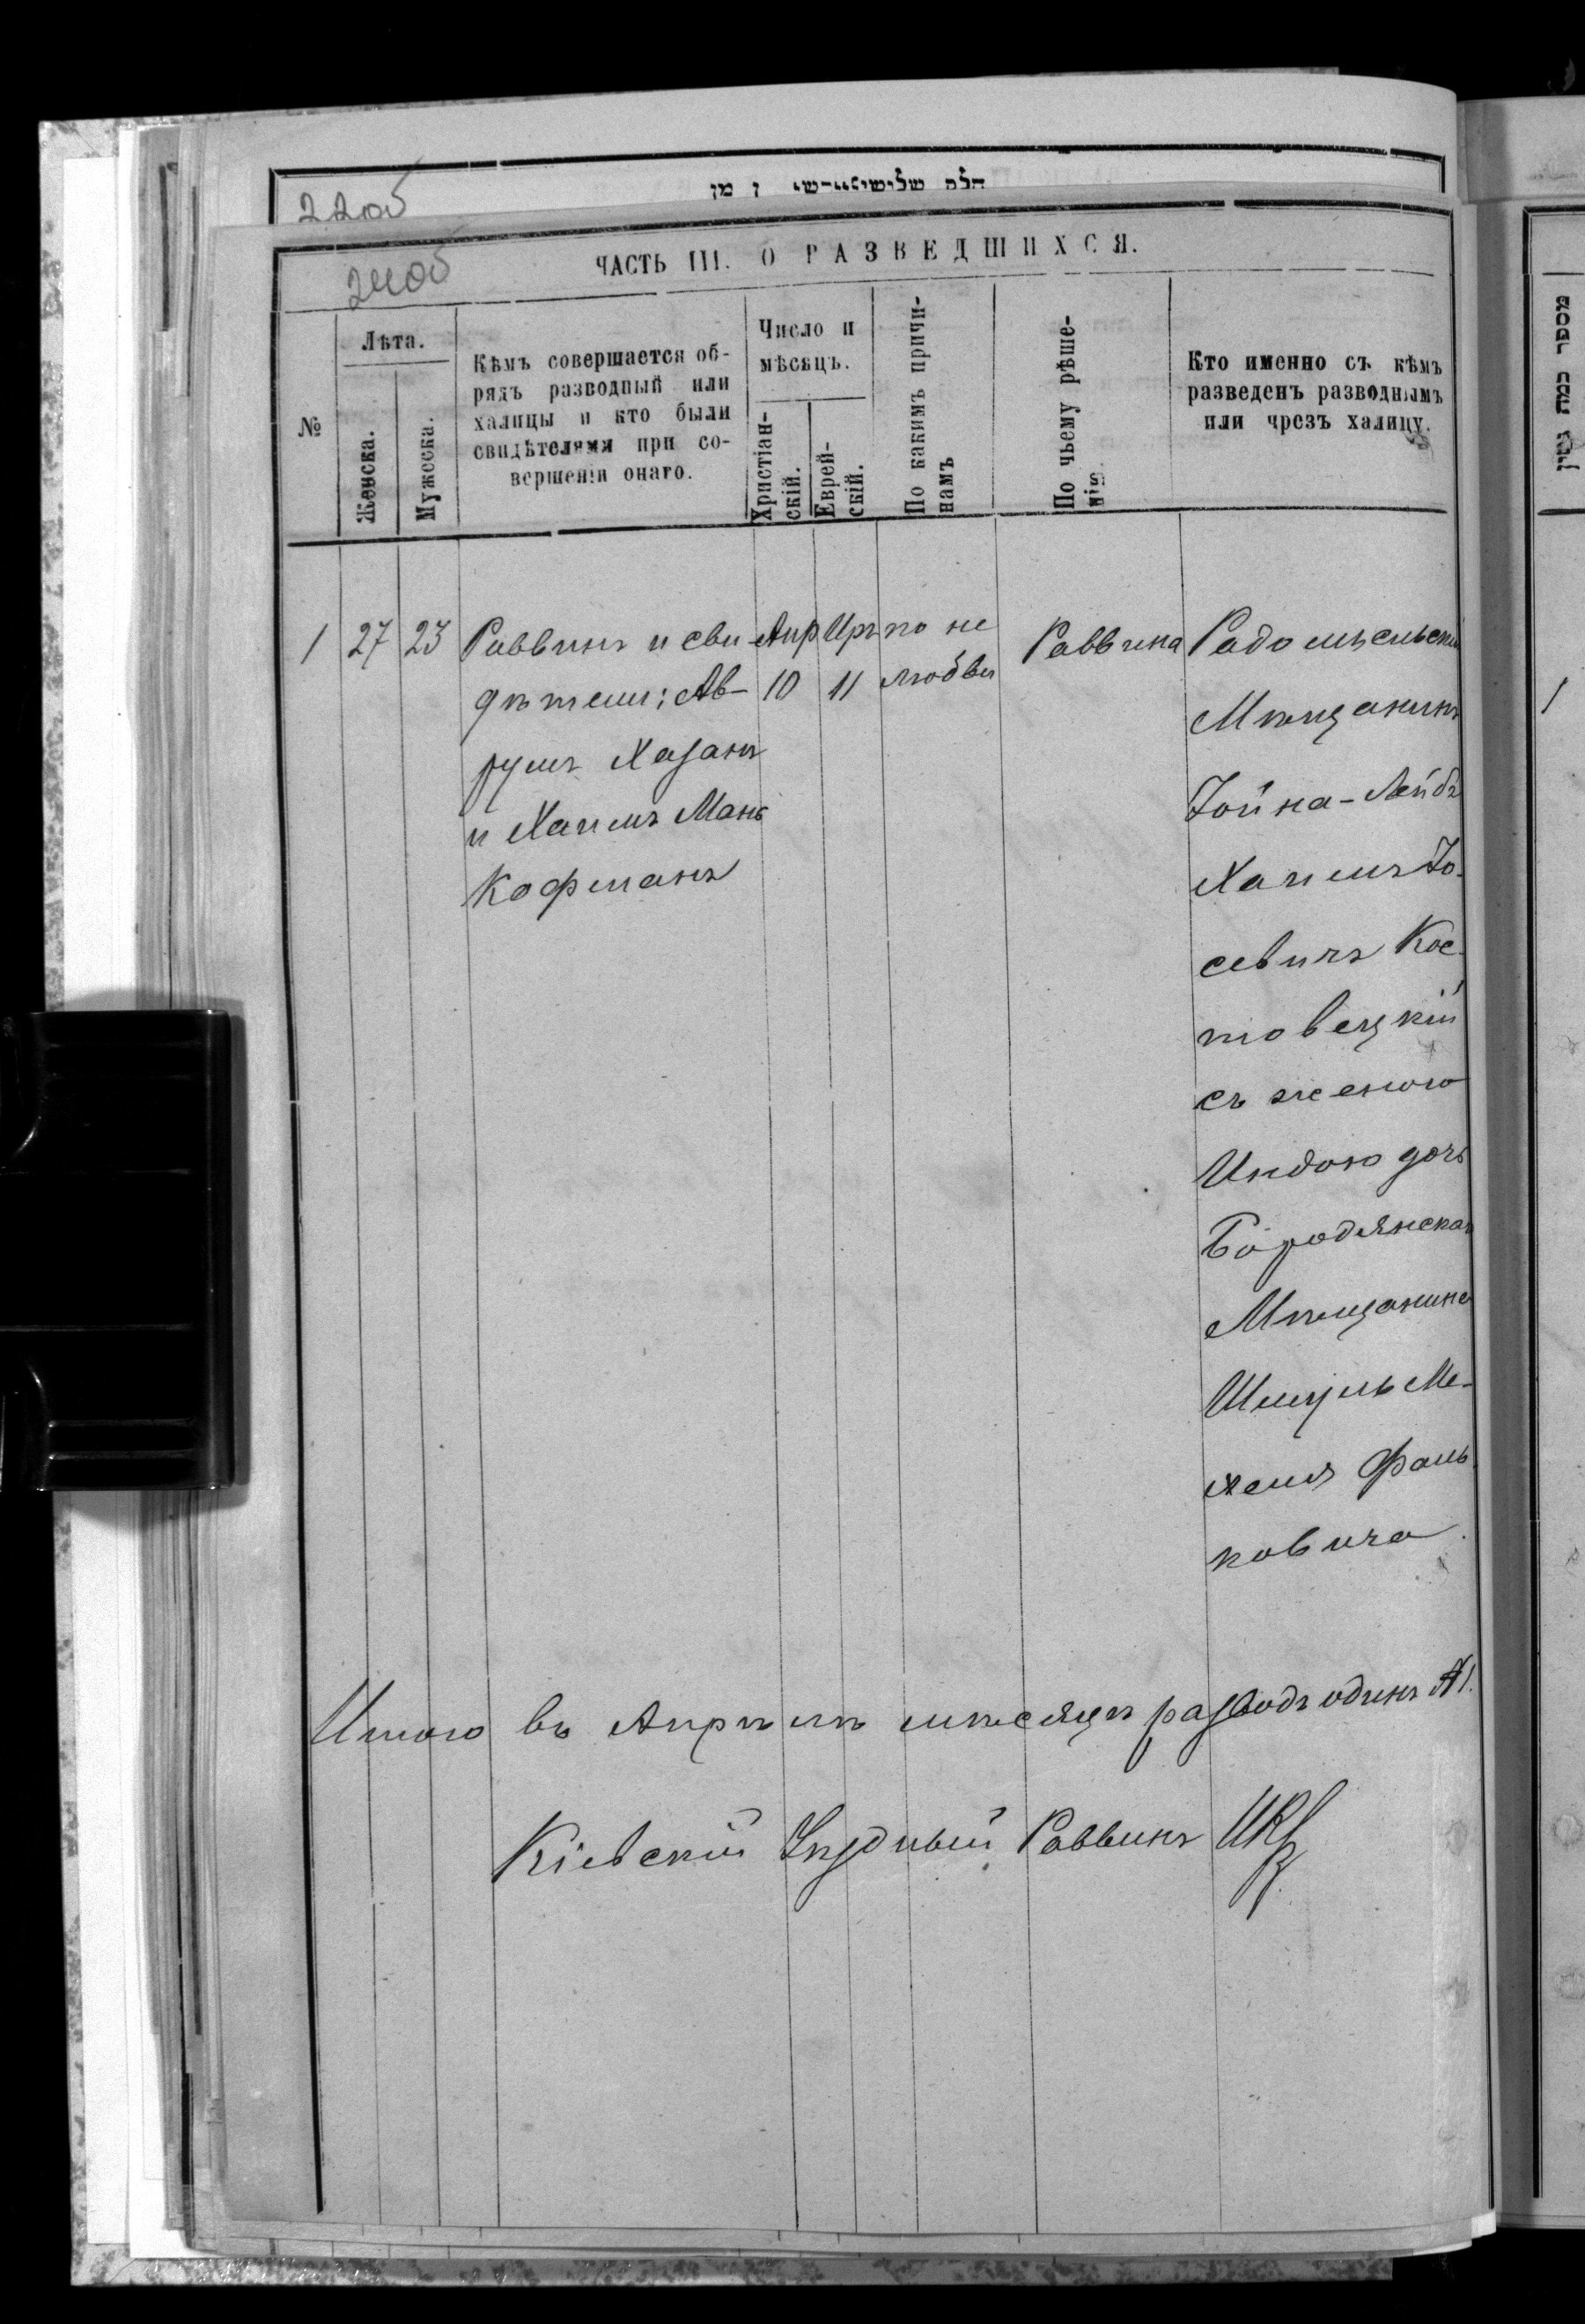 22об
24об
ЧАСТЬ III. О РАЗВЕДШИХСЯ.
№
Лѣта.
Женска.
Мужеска.
Кѣмъ совершается об-
рядъ разводный или
халицы и кто были
свидѣтелями при со-
вершеніи онаго.
Число и
мѣсяцъ.
Христіан-
скій.
Еврей-
скій.
По какимъ причи-
намъ
По чьему рѣше-
нію
Кто именно съ кѣмъ
разведенъ разводнымъ
или чрезъ халицу.
1
27
23
Раввинъ и сви-
дѣтели: Ав-
румъ Хазанъ
и Хаимъ Мань
Кофманъ
Апр
10
Иръ
11
по не
любви
Раввина
Радомысльскій
Мѣщанинъ
Іойна-Лейбъ
Хаимъ Іо-
севичъ Кос-
товецкій
съ женою
Индою дочь
Бородянская
Мѣщанина
Шмуль Ме-
хеля Фаль
ковича
Итого въ Апрѣлѣ мѣсяцѣ разводъ одинъ №1.
Кіевскій Уѣздный Раввинъ
מספר כמה גטין
1